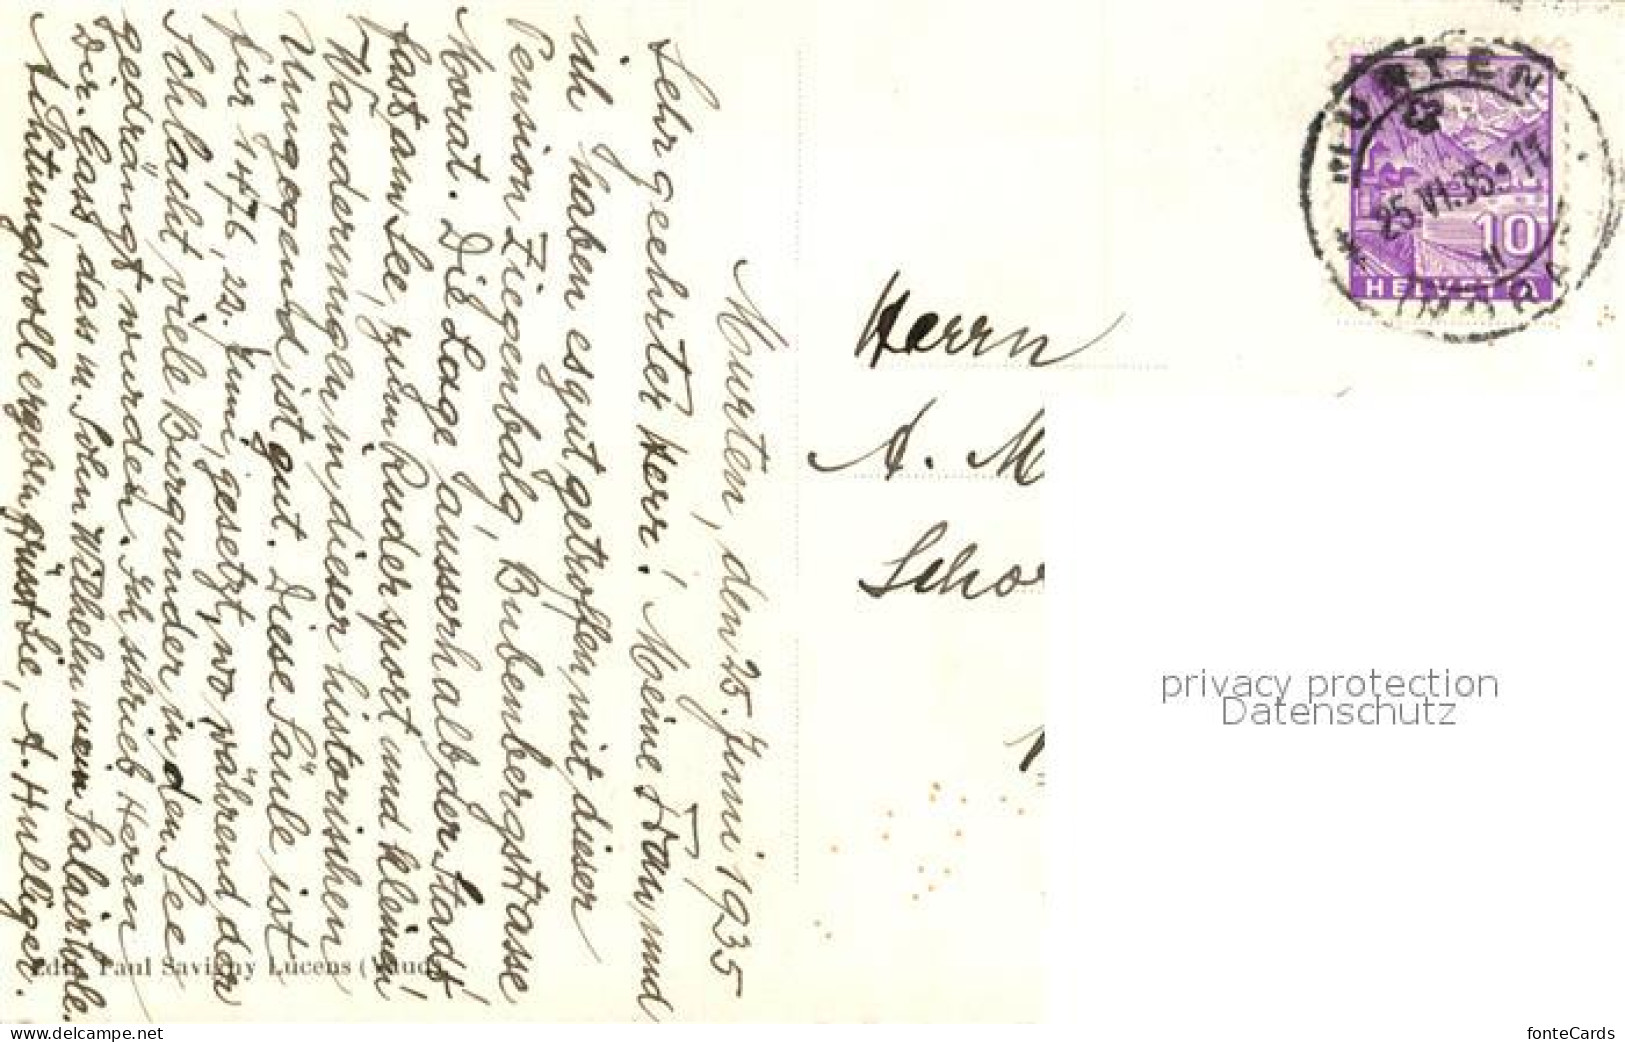 Mourten, den 25. Juni 1935
Sehr geehrter Herr! Meine Frau, und
ich haben es gut getroffen, mit dieser
Pension Ziegenbalg, Bubenbergstrasse
Morat. Die Lage ausserhalb der Stadt
fast am See, zum Rudersport und kleinen
Wanderungen in dieser historischen
Umgegend ist gut. Diese Säule ist
für 1476, 22. Juni, gesetzt, wo während der
Schlacht viele Burgunder in den See
gedrängt wurden. Ich schrieb Herrn
Dir. Gass, dass m. Sohn Wilhelm mein Salair hole.
Achtungsvoll ergeben grüsst Sie, A. Hulliger.
Edit. Paul Savigny Lucens (Vaud)
MURTEN
25.VI.35.-11
MORAT
10
HELVETIA
Herrn
A. M
Scho
privacy protection
Datenschutz
www.delcampe.net
fonteCards